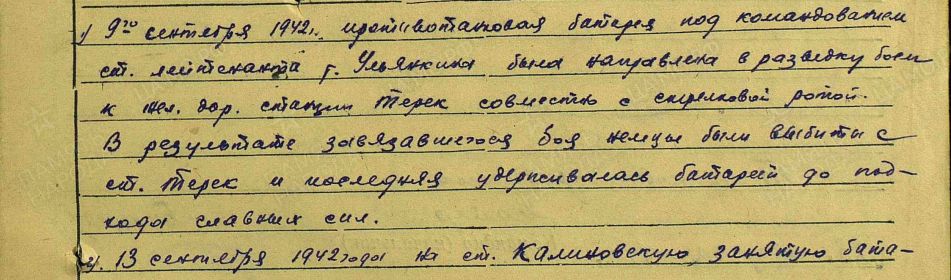 1) 9го сентября 1942г. противотанковая батарея под командованием
ст. лейтенанта т. Ульянкина была направлена в разведку боем
к жел. дор. станции Терек совместно с стрелковой ротой.
В результате завязавшегося боя немцы были выбиты с
ст. Терек и последняя удерживалась батареей до под-
хода главных сил.
2). 13 сентября 1942 года на ст. Калиновскую, занятую бата-